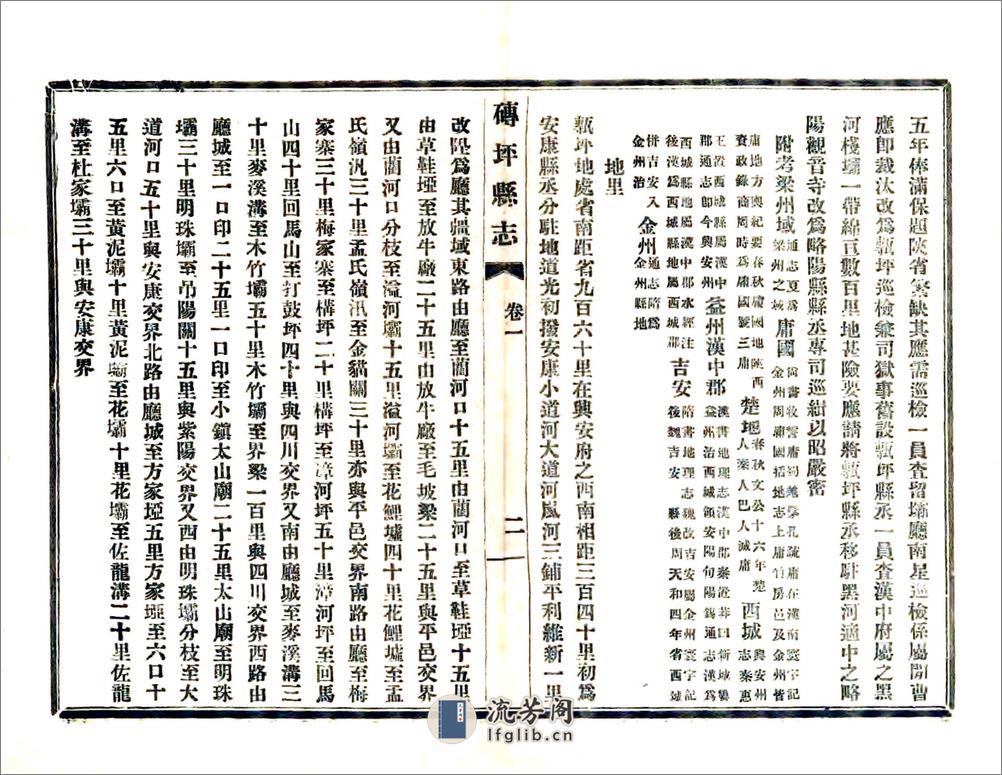 五年俸滿保題陝省繁缺其應需巡檢一員查留壩廳南星巡檢係屬閒曹
應卽裁汰改爲甎坪巡檢兼司獄事舊設甎坪縣丞一員查漢中府屬之黑
河棧壩一帶綿亘數百里地甚險要應請將甎坪縣丞移駐黑河適中之略
陽觀音寺改爲略陽縣縣丞專司巡緝以昭嚴密
附考梁州域 通志夏爲梁州之域 庸國
庸地方輿紀要春秋庸國地陝西興安州
資政錄商周時爲庸國號三庸 楚地 春秋文公十六年楚人秦人巴人滅庸 西城
益州漢中郡
吉安
金州
地里
甎坪地處省南距省九百六十里在興安府之西南相距三百四十里初爲
安康縣丞分駐地道光初撥安康小道河大道河嵐河三鋪平利維新一里
磚坪縣志 卷一 二
改陞爲廳其疆域東路由廳至藺河口十五里由藺河口至草鞋埡十五里
由草鞋埡至放牛廠二十五里由放牛廠至毛坡梁二十五里與平邑交界
又由藺河口分枝至溢河壩十五里溢河壩至花鯉墟四十里花鯉墟至孟
氏嶺汛三十里孟氏嶺汛至金貓關三十里亦與平邑交界南路由廳至梅
家寨三十里梅家寨至構坪二十里構坪至漳河坪五十里漳河坪至回馬
山四十里回馬山至打鼓坪四十里與四川交界又南由廳城至麥溪溝三
十里麥溪溝至木竹壩五十里木竹壩至界梁一百里與四川交界西路由
廳城至一口印二十五里一口印至小鎮太山廟二十五里太山廟至明珠
壩三十里明珠壩至吊陽關十五里與紫陽交界又西由明珠壩分枝至大
道河口五十里與安康交界北路由廳城至方家埡五里方家埡至六口十
五里六口至黃泥壩十里黃泥壩至花壩十里花壩至佐龍溝二十里佐龍
溝至杜家壩三十里與安康交界
流芳阁
lfglib.cn